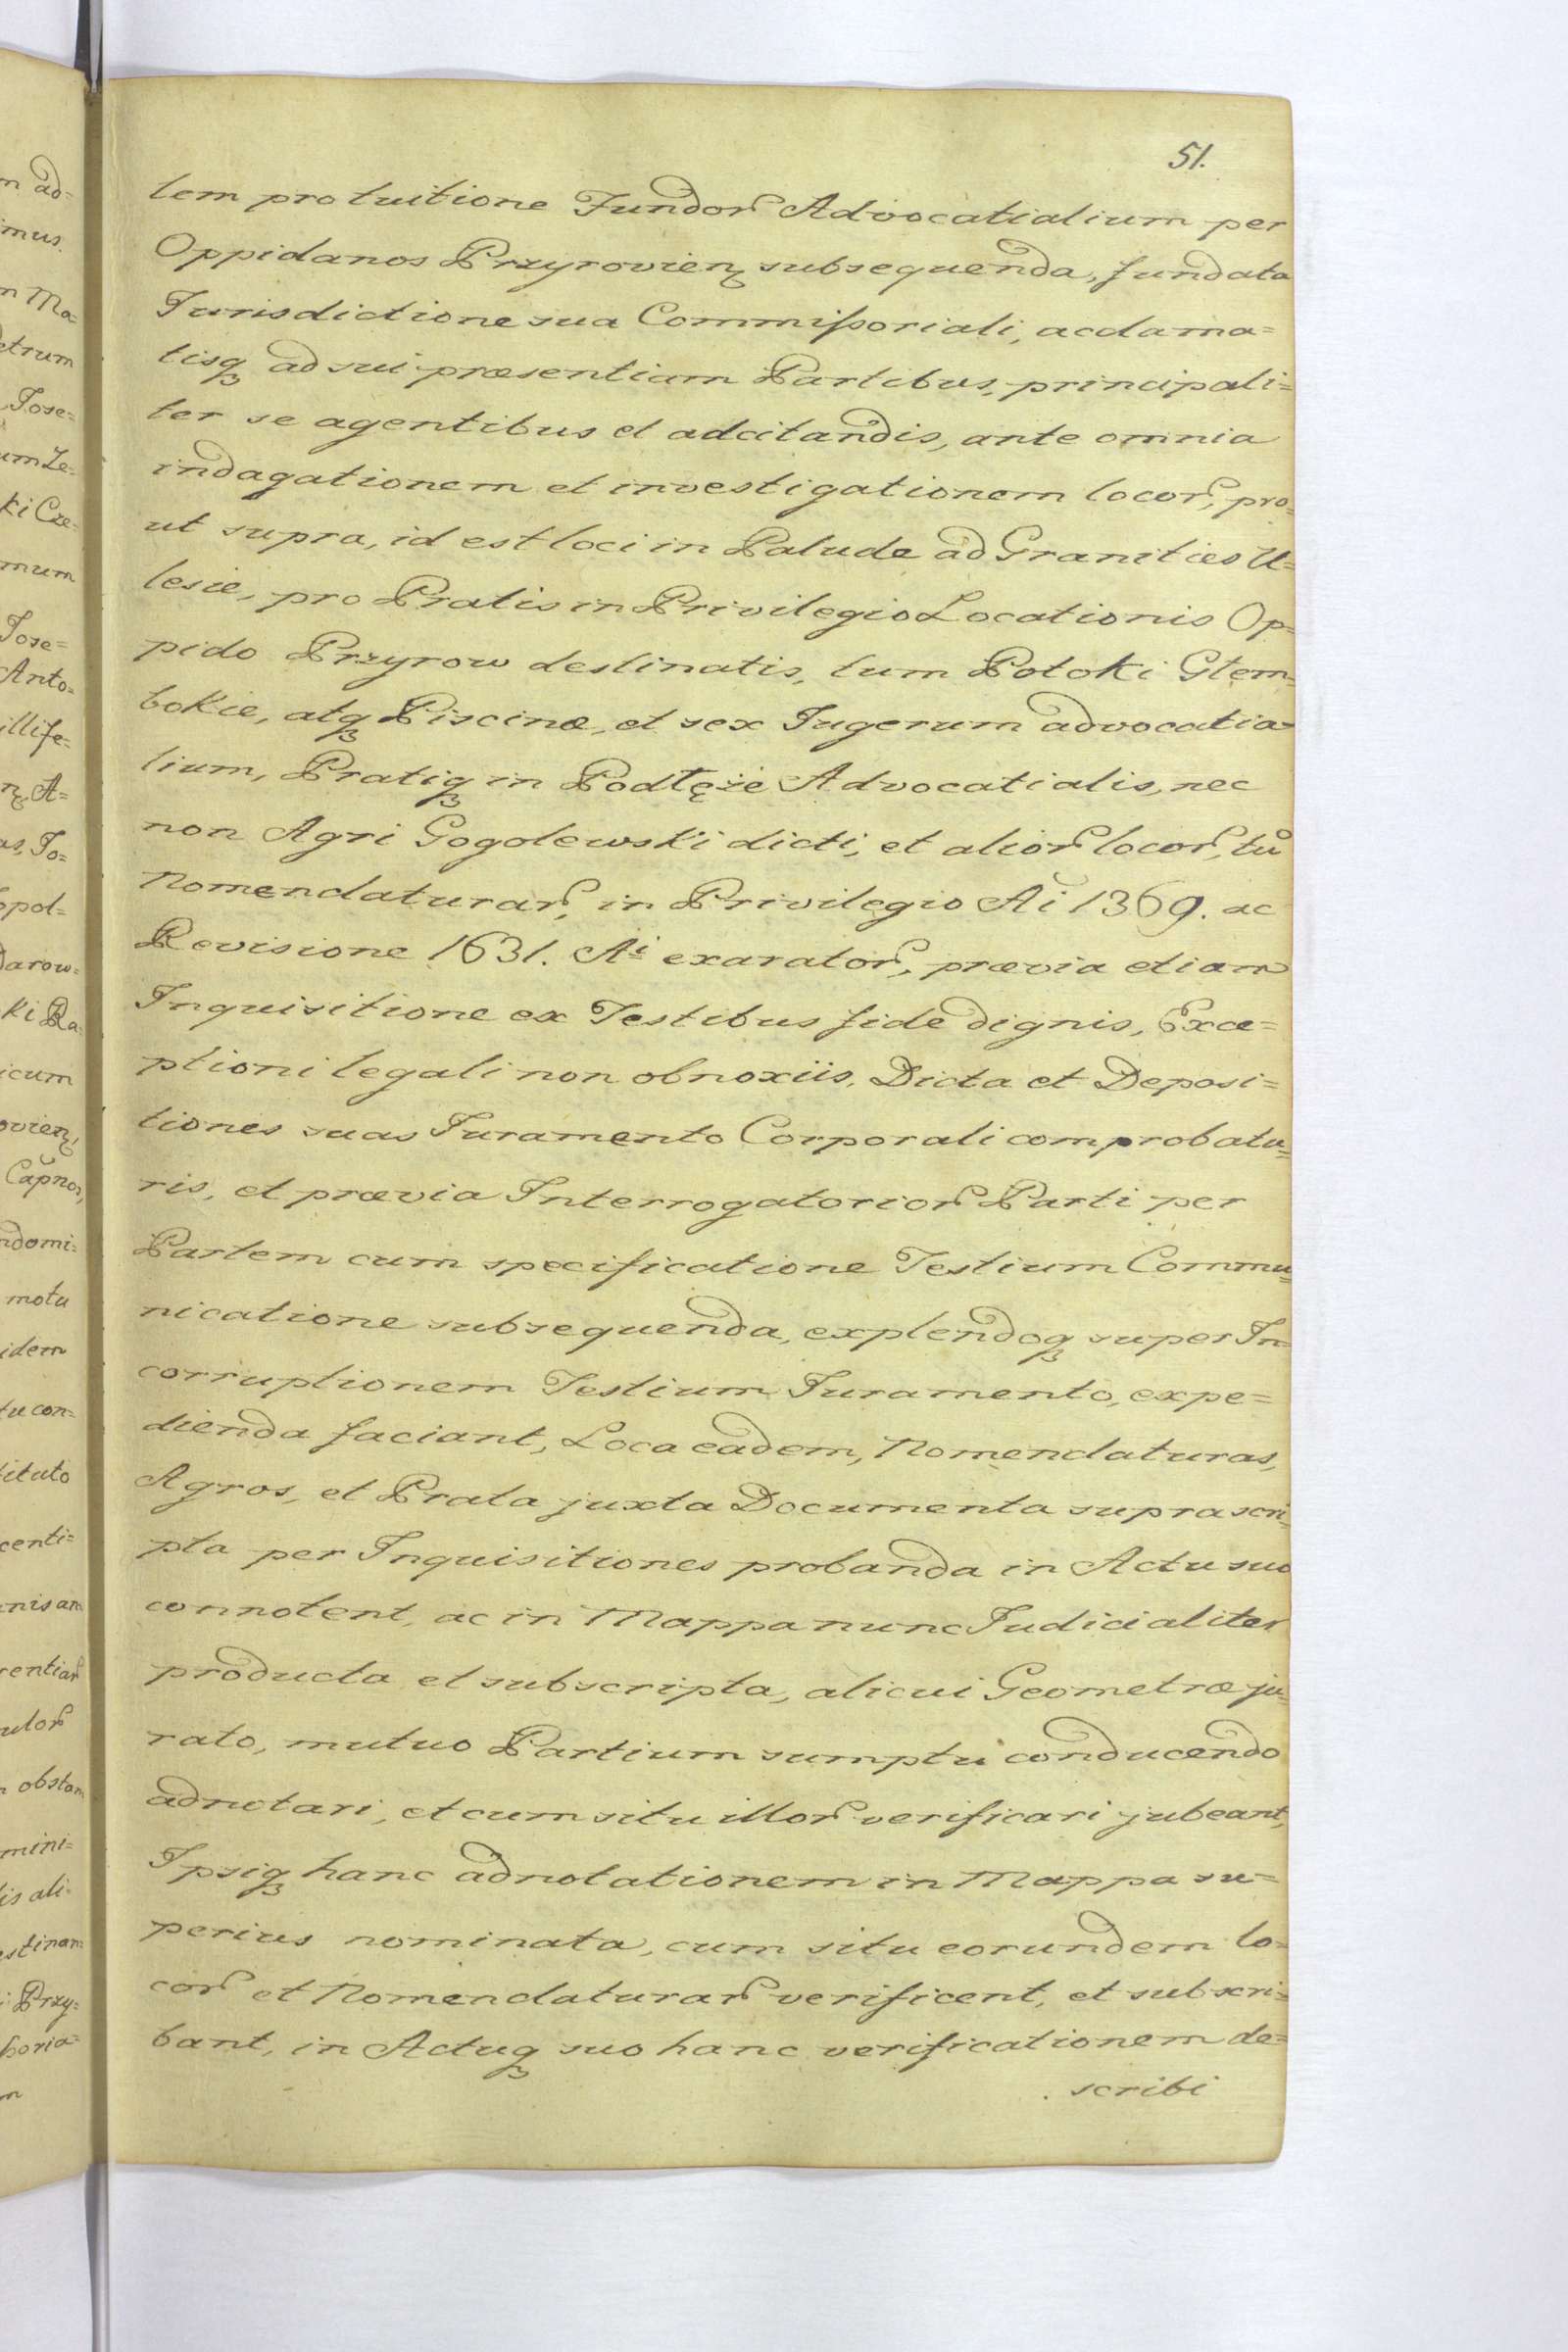 51.
tem pro tuitione Fundor̃ Advocatialium per
Oppidanos Przyrovien̨ subsequenda, fundata
Jurisdictione sua Commiſsoriali, acclama=
tisqꝫ ad sui præsentiam Partibus, principali=
ter se agentibus et adcitandis, ante omnia
indagationem et investigationem locor̃, pro=
ut supra, id est loci in Palude ad Granities U=
lesie, pro Pratis in Privilegio Locationis Op=
pido Przyrow destinatis, tum Potoki Głem=
bokie, atqꝫ Piscinæ, et sex Jugerum advocatia=
lium, Pratiqꝫ in Podłęże Advocatialis, nec
non Agri Gogolewski dicti, et alior̃ locor̃, tũ
Nomenclaturar̃, in Privilegio Ai 1369. ac
Revisione 1631. Ai exarator̃, prævia etiam
Inquisitione ex Testibus fide dignis, Exce=
ptioni legali non obnoxiis, Dicta et Deposi=
tiones suas Juramento Corporali comprobatu=
ris, et prævia Interrogatorior̃ Parti per
Partem cum specificatione Testium Commu=
nicatione subsequenda, explendoqꝫ super In=
corruptionem Testium Juramento, expe=
dienda faciant, Loca eadem, Nomenclaturas,
Agros, et Prata juxta Documenta suprascri=
pta per Inquisitiones probanda in Actu suo
connotent, ac in Mappa nunc Judicialiter
producta et subscripta, alicui Geometræ ju=
rato, mutuo Partium sumptu conducendo
adnotari, et cum situ illor̃ verificari jubeant,
Ipsiqꝫ hanc adnotationem in Mappa su=
perius nominata, cum situ eorundem lo=
cor̃ et Nomenclaturar̃ verificent, et subscri=
bant, in Actuqꝫ suo hanc verificationem de=
scribi